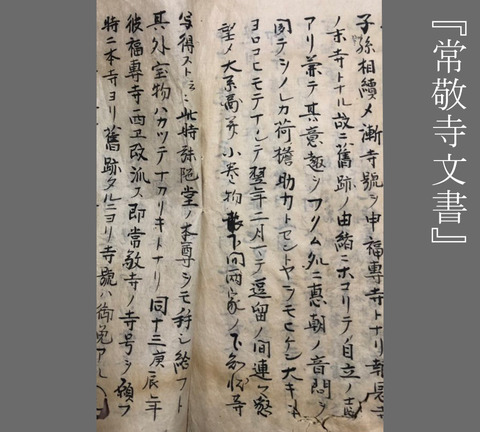 『常敬寺文書』
子孫相續メ漸寺號ヲ申福專寺トナリ
ノ末寺トナル故ニ舊跡ノ由緒ニホコリテ自立ノ志
アリ兼テ其意趣ヲフクム処ニ惠朝ノ音問ヲ
聞テシノレカ荷擔助力トセントヤヲモヒケン大キニ
ヨロコヒモテナシテ翌年二月マテ逗留ノ間連々懇
望メ大系高 小巻物 下間兩家ノ下知
写得ストニ此時弥陀堂ノ本尊ヲモ終フト
其外宝物ハカツテナカリキトナリ同十三庚辰年
彼福專寺西エ改派ス即常敬寺ノ寺号ヲ願フ
時ニ本寺ヨリ舊跡タルニヨリ寺號ハ御免アル